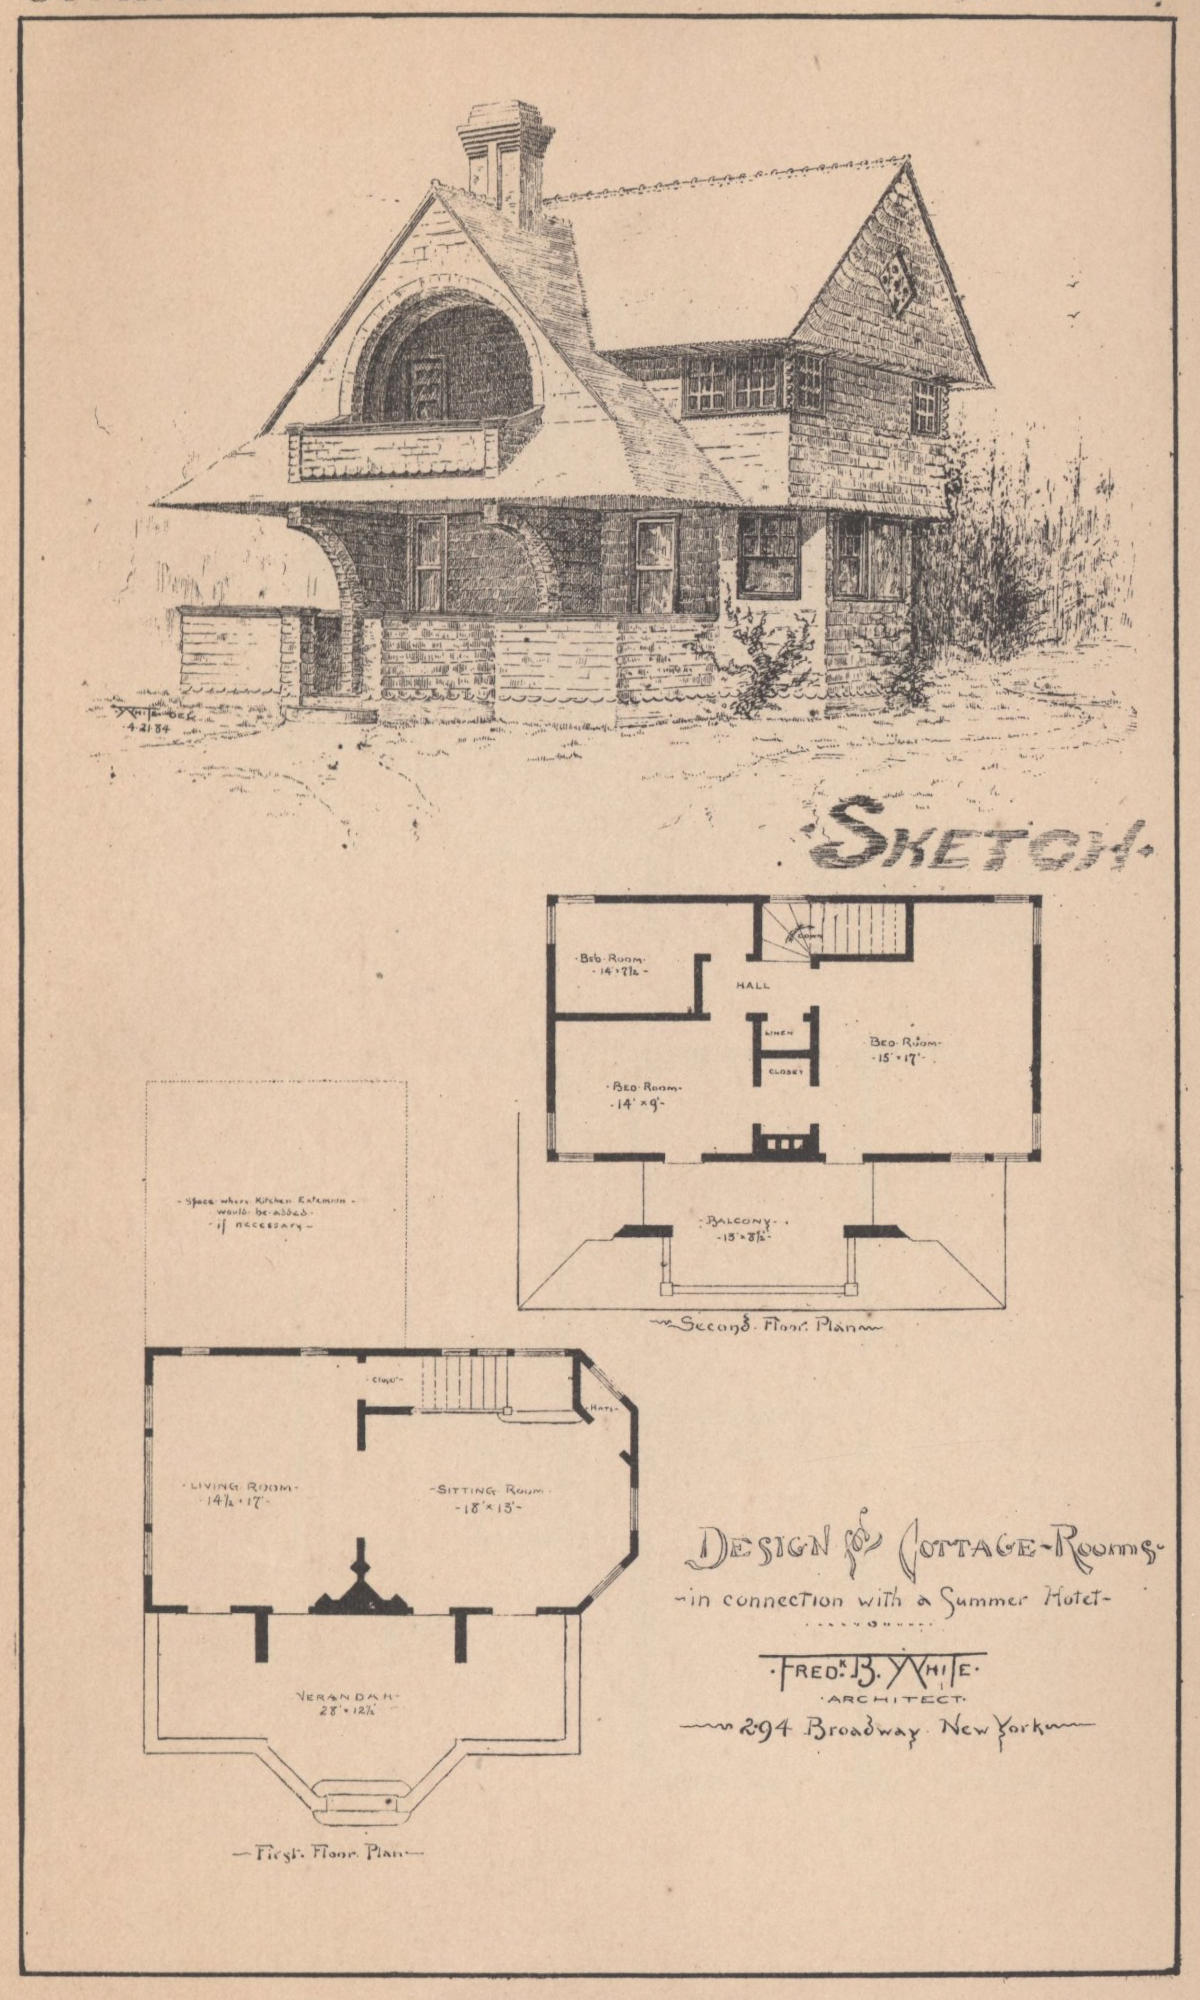 White del
4.21.84
SKETCH.
Bed Room
14' × 7½
DOWN
HALL
LINEN
CLOSET
Bed Room
15' × 17'
Bed Room
14' × 9'
Balcony
13' × 8½'
Second Floor Plan
Space where Kitchen Extension
would be added
if necessary
Closet
Hats
Living Room
14½ × 17'
Sitting Room
18' × 13'
Verandah
28' × 12½'
First Floor Plan
Design for Cottage-Rooms
in connection with a Summer Hotel
Fredk. B. White
Architect.
294 Broadway New York